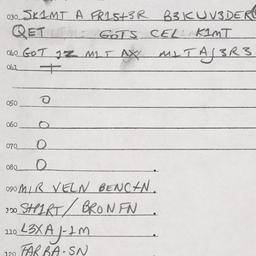 030 SK1MT A FR15+3R B3KWV3DER
QET GOTS CEL K1MT
040 GOT JZ M1T AX M1TAJ3R3
041 +
050 O
060 O
070 O
080 O
090 MIR VELN BENC+N.
100 SHPIRT/ BRONFN.
110 L3XAJ-1M
120 FARBA.SN